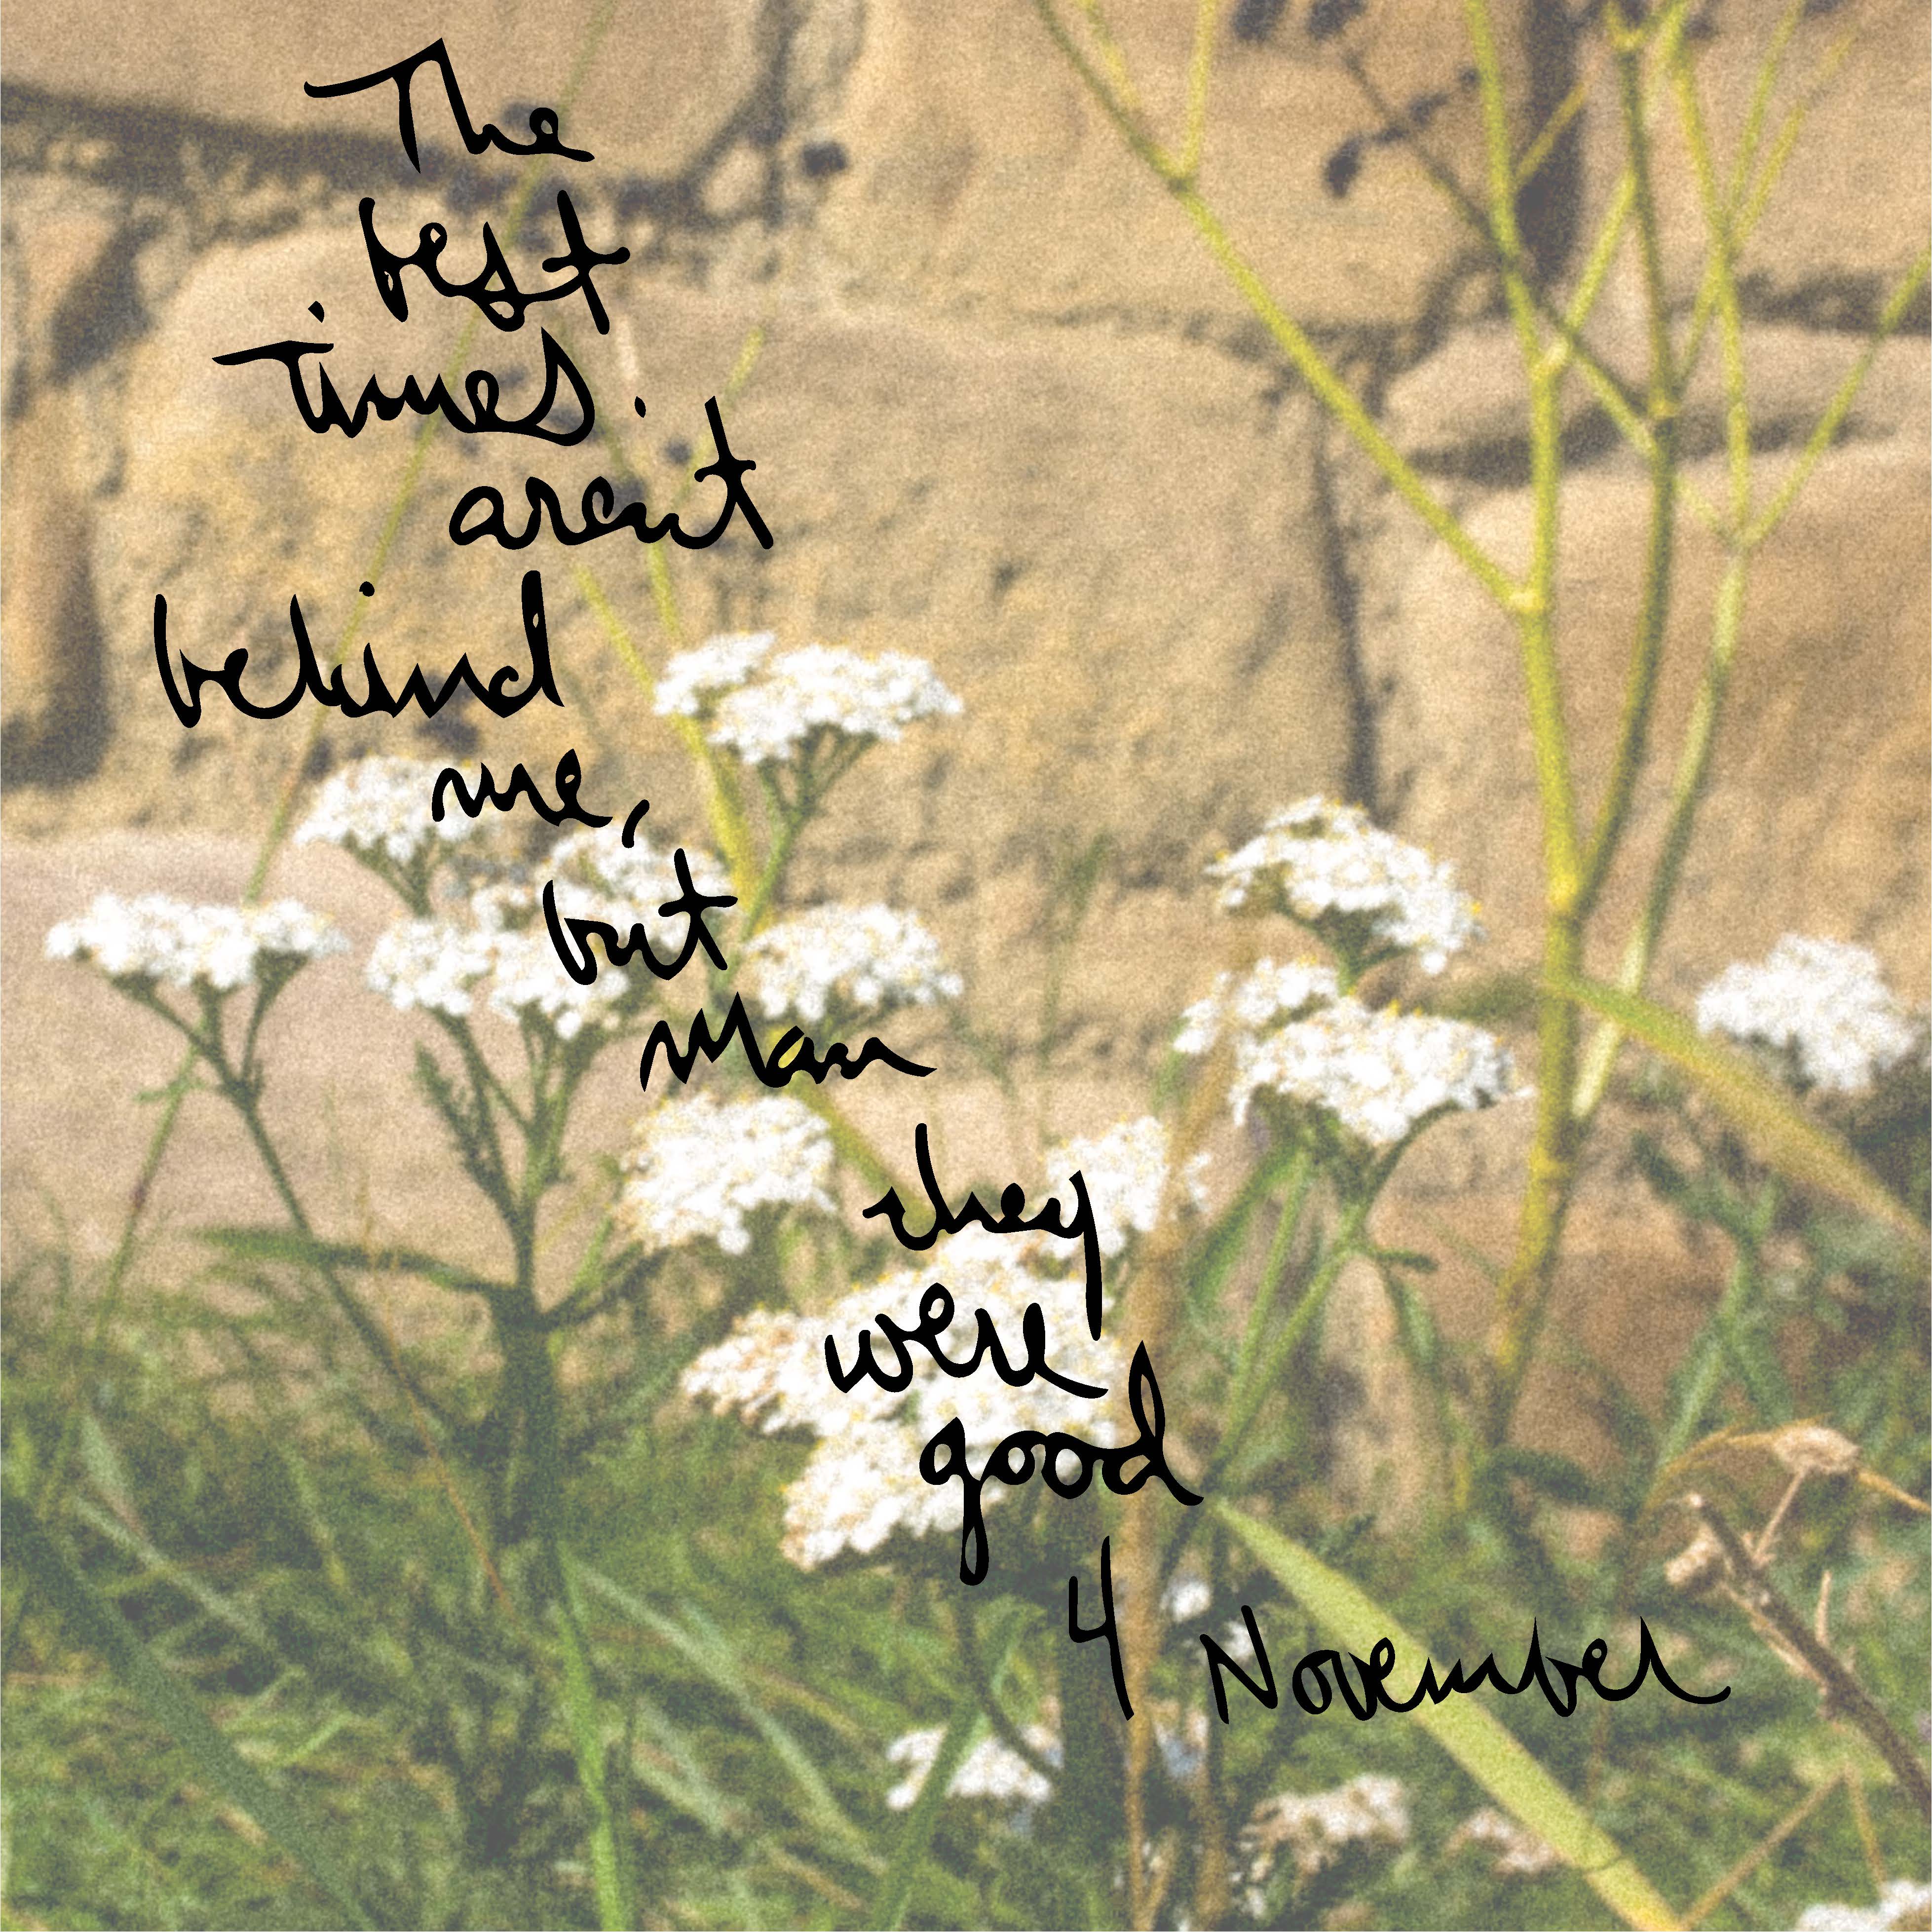 The
best
Times
aren't
behind
me,
but
Man
they
were
good
4 November